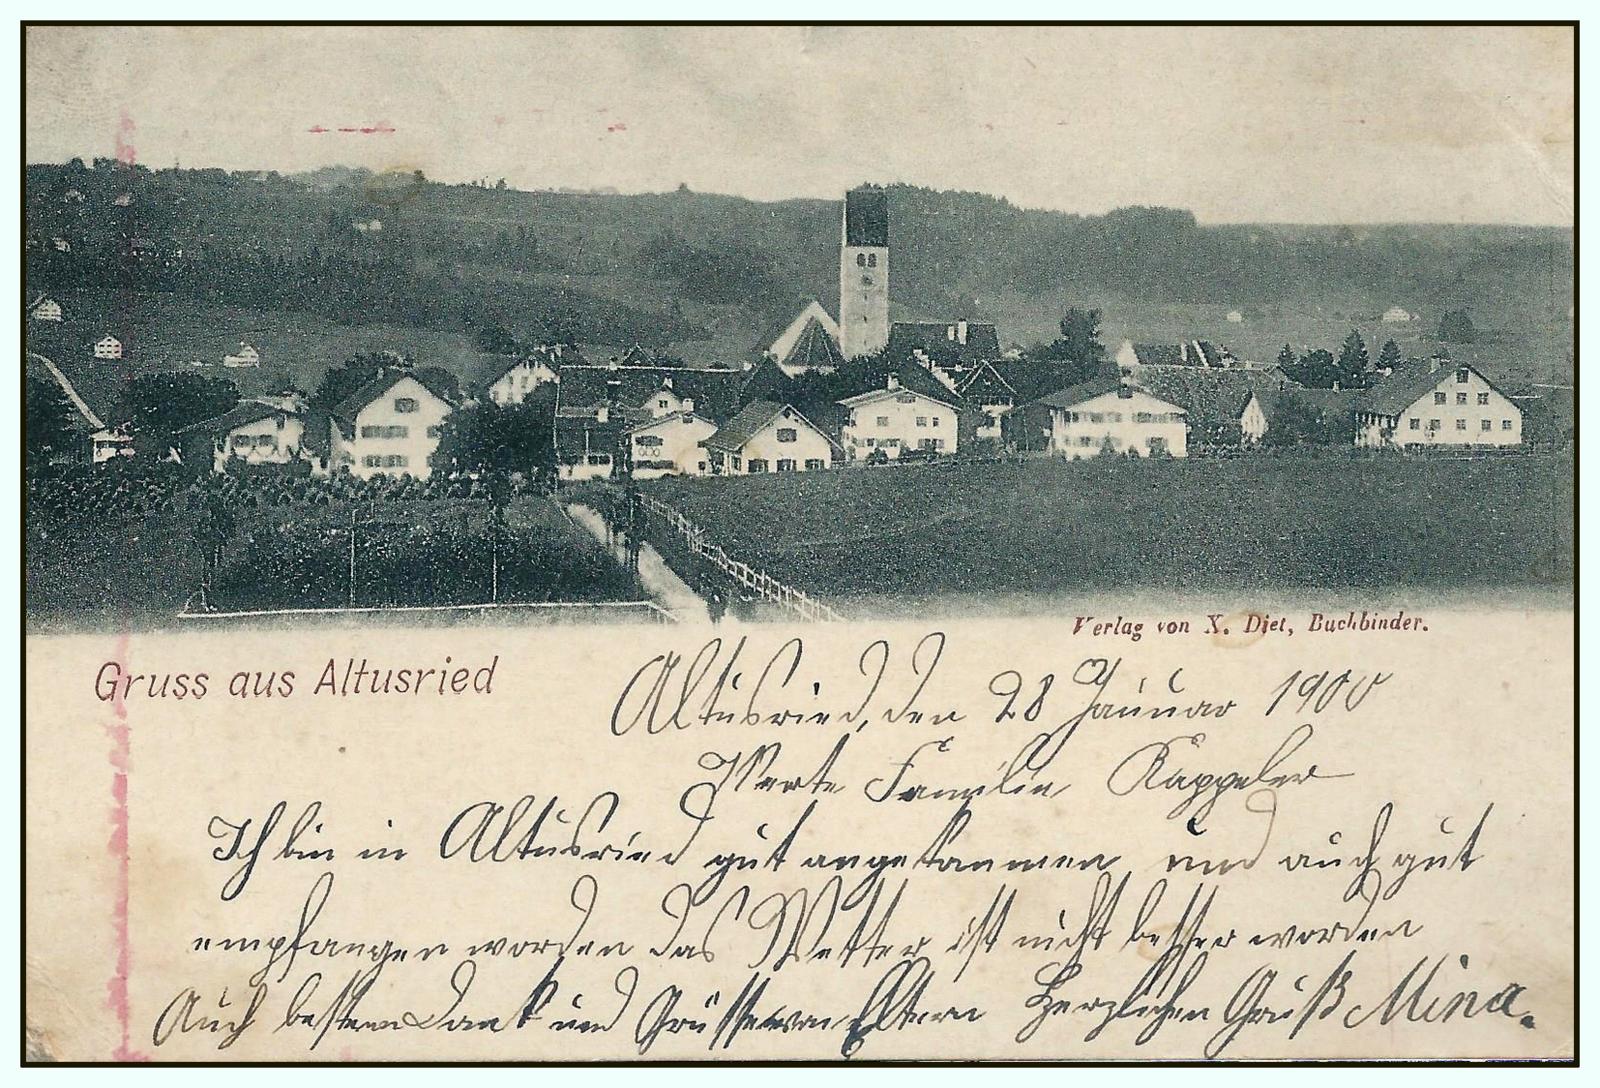 Verlag von X. Diet, Buchbinder.
Gruss aus Altusried
Altusried, den 28 Januar 1900
Werte Familie Kappeler
Ich bin in Altusried gut angekommen und auch gut
empfangen worden das Wetter ist nicht besser worden
Auch besten Dank und Grüsse von Eltern Herzlichen Gruß Mina.